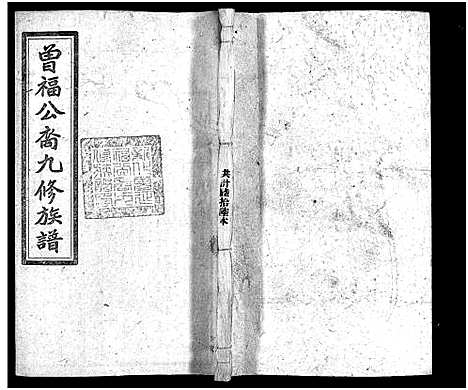 曾福公裔九修族譜
共計陸拾陸本